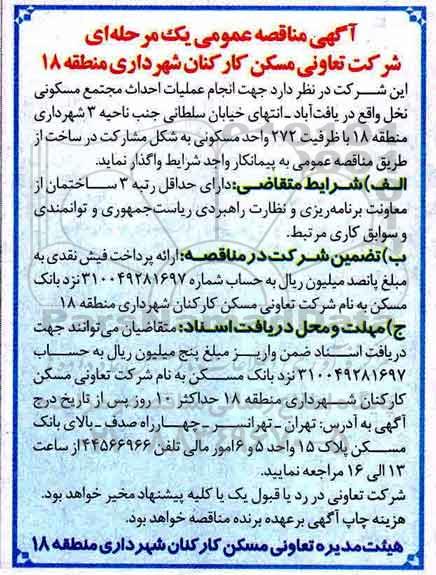 آگهی مناقصه عمومی یک مرحله‌ای
شرکت تعاونی مسکن کارکنان شهرداری منطقه ۱۸
این شرکت در نظر دارد جهت انجام عملیات احداث مجتمع مسکونی
نخل واقع در یافت‌آباد ـ انتهای خیابان سلطانی جنب ناحیه ۳ شهرداری
منطقه ۱۸ با ظرفیت ۲۷۲ واحد مسکونی به شکل مشارکت در ساخت از
طریق مناقصه عمومی به پیمانکار واجد شرایط واگذار نماید.
الف) شرایط متقاضی: دارای حداقل رتبه ۳ ساختمان از
معاونت برنامه‌ریزی و نظارت راهبردی ریاست‌جمهوری و توانمندی
و سوابق کاری مرتبط.
ب) تضمین شرکت در مناقصه: ارائه پرداخت فیش نقدی به
مبلغ پانصد میلیون ریال به حساب شماره ۳۱۰۰۴۹۲۸۱۶۹۷ نزد بانک
مسکن به نام شرکت تعاونی مسکن کارکنان شهرداری منطقه ۱۸
ج) مهلت و محل دریافت اسناد: متقاضیان می‌توانند جهت
دریافت اسناد ضمن واریز مبلغ پنج میلیون ریال به حساب
۳۱۰۰۴۹۲۸۱۶۹۷ نزد بانک مسکن به نام شرکت تعاونی مسکن
کارکنان شهرداری منطقه ۱۸ حداکثر ۱۰ روز پس از تاریخ درج
آگهی به آدرس: تهران ـ تهرانسر ـ چهارراه صدف ـ بالای بانک
مسکن پلاک ۱۵ واحد ۵ و ۶ امور مالی تلفن ۴۴۵۶۶۹۶۶ از ساعت
۱۳ الی ۱۶ مراجعه نمایید.
شرکت تعاونی در رد یا قبول یک یا کلیه پیشنهاد مخیر خواهد بود.
هزینه چاپ آگهی برعهده برنده مناقصه خواهد بود.
هیئت مدیره تعاونی مسکن کارکنان شهرداری منطقه ۱۸